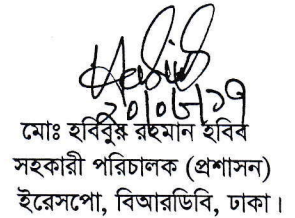 মোঃ হবিবুর রহমান হবিব
সহকারী পরিচালক (প্রশাসন)
ইরেসপো, বিআরডিবি, ঢাকা।